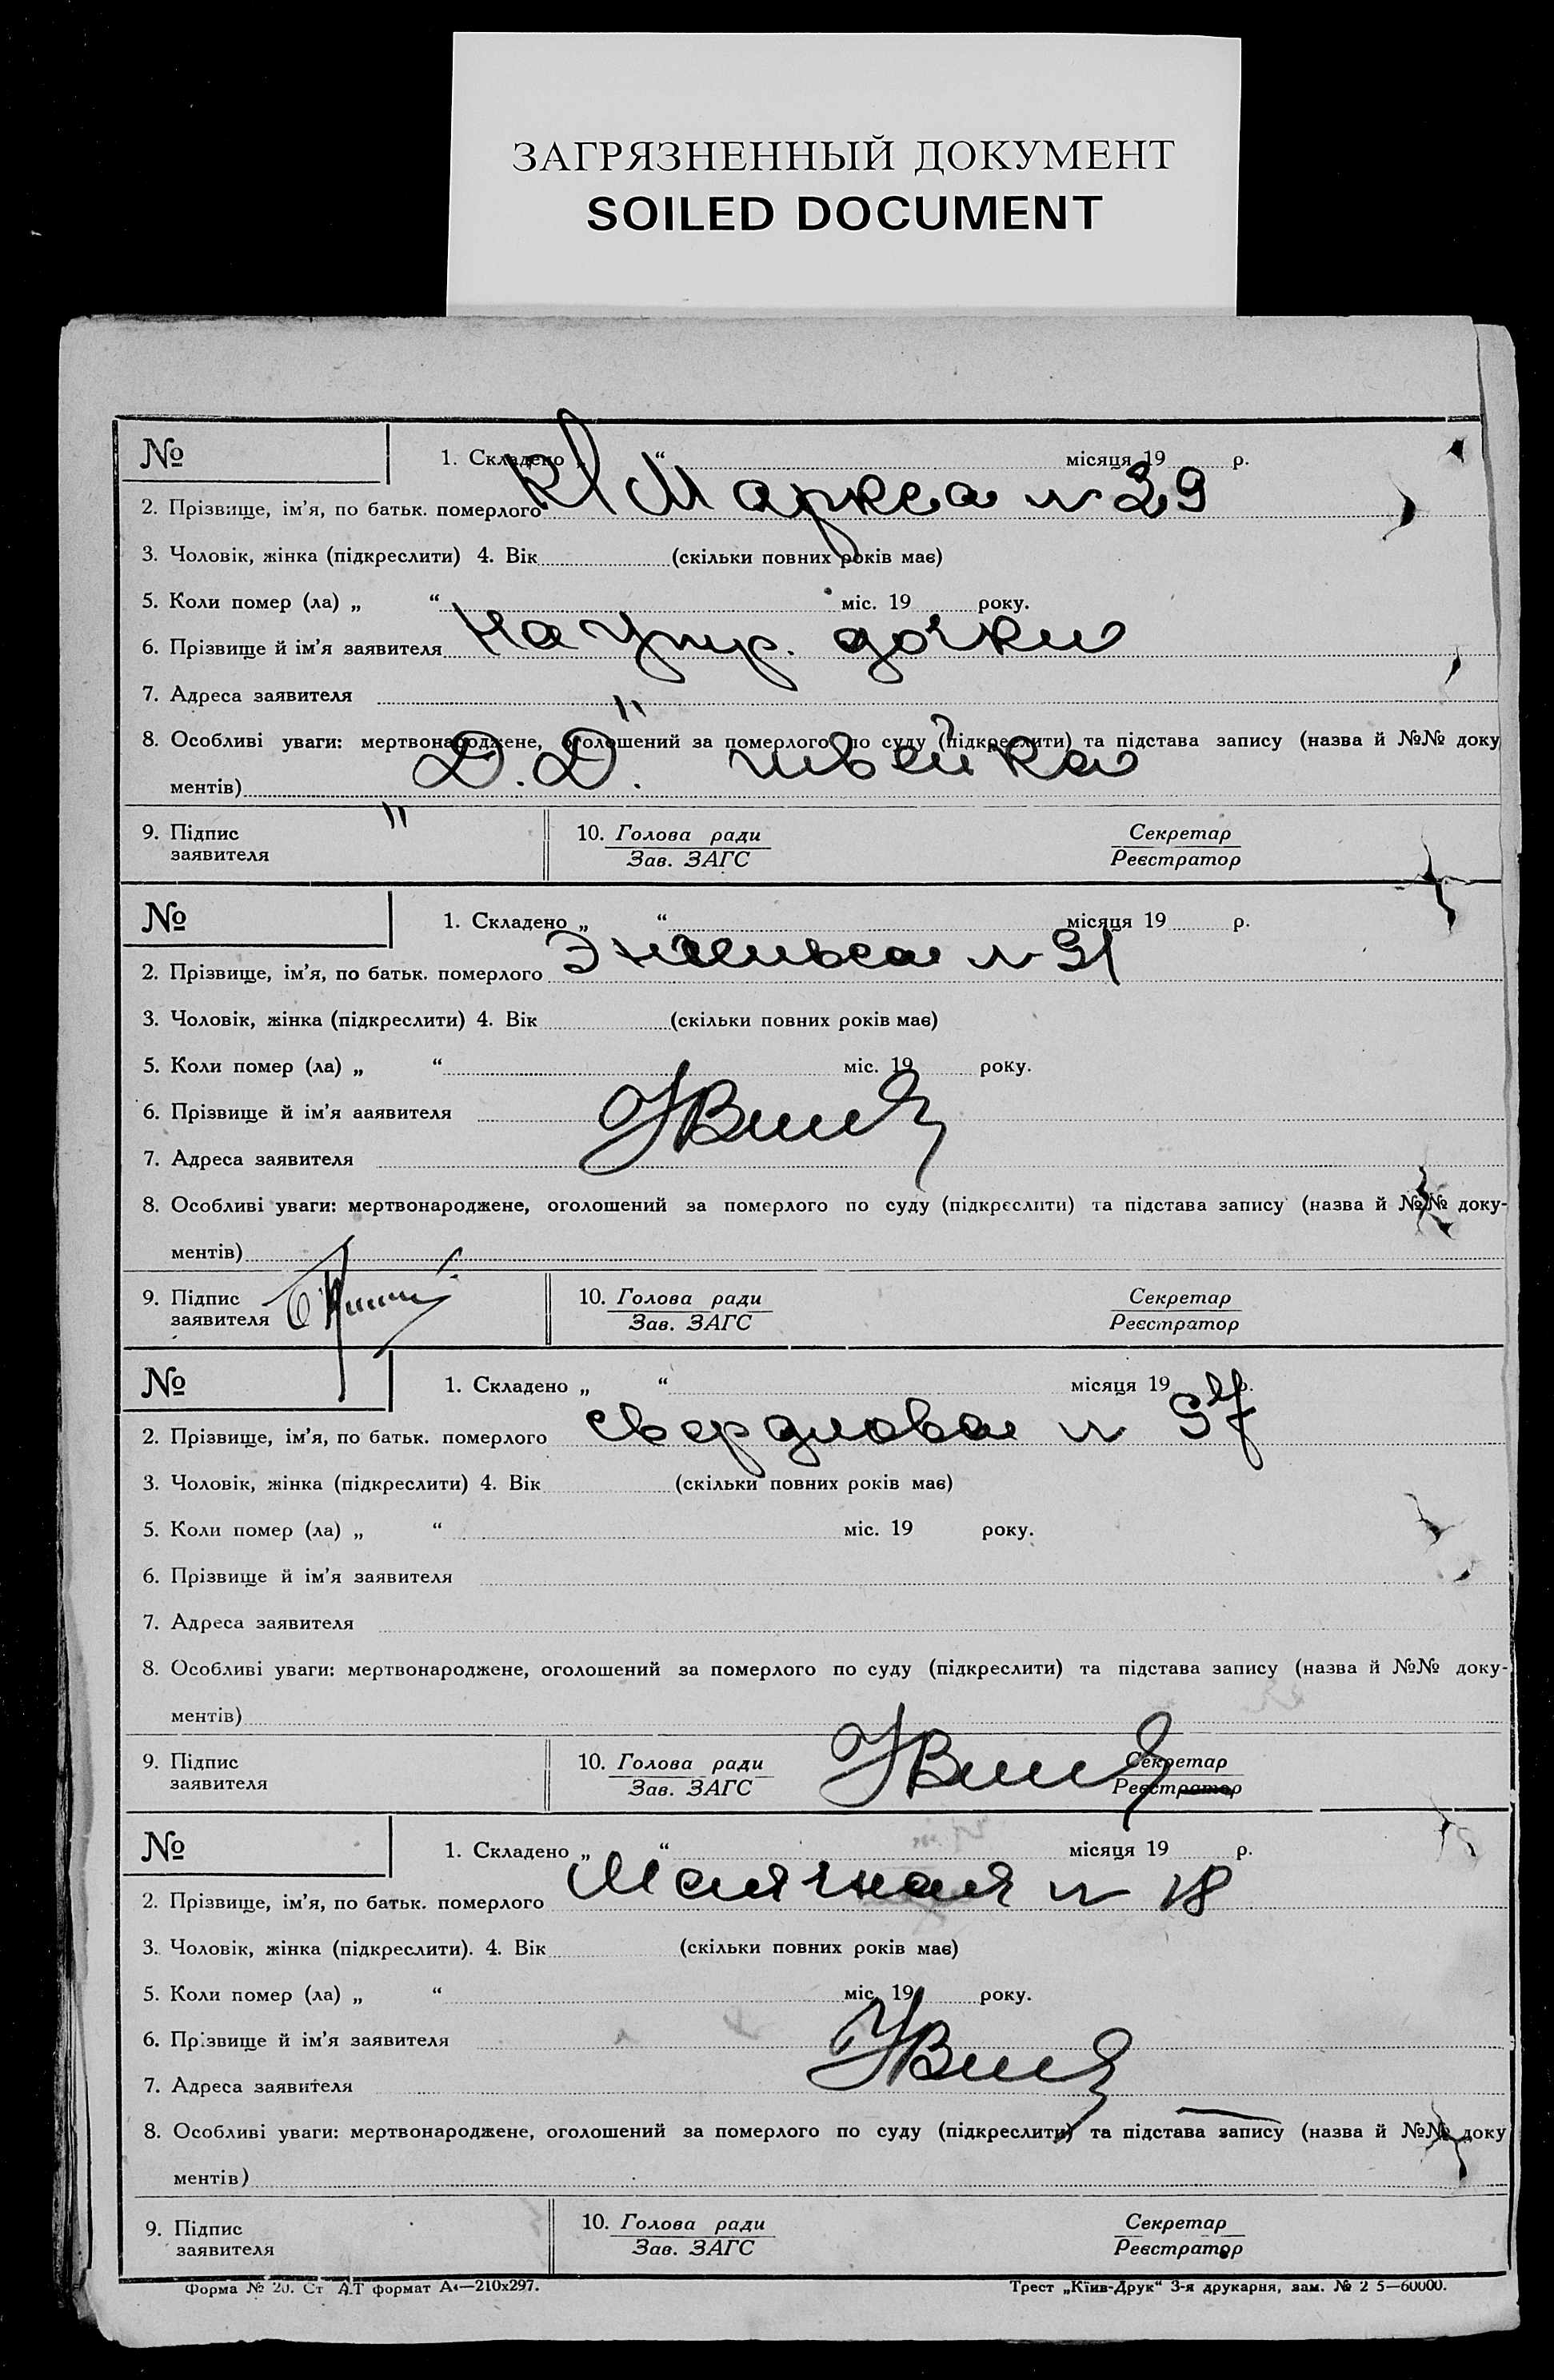 ЗАГРЯЗНЕННЫЙ ДОКУМЕНТ
SOILED DOCUMENT
№
1. Складено „ “ місяця 19 р.
К Маркса № 29
2. Прізвище, ім’я, по батьк. померлого
3. Чоловік, жінка (підкреслити) 4. Вік (скільки повних років має)
5. Коли помер (ла) „ “ міс. 19 року.
на дочки
6. Прізвище й ім’я заявителя
7. Адреса заявителя
8. Особливі уваги: мертвонароджене, оголошений за померлого по суду (підкреслити) та підстава запису (назва й №№ доку
Д.Д. швейка
ментів)
9. Підпис заявителя
10. Голова ради Секретар
Зав. ЗАГС Реєстратор
№
1. Складено „ “ місяця 19 р.
Энгельса №
2. Прізвище, ім’я, по батьк. померлого
3. Чоловік, жінка (підкреслити) 4. Вік (скільки повних років має)
5. Коли помер (ла) „ “ міс. 19 року.
6. Прізвище й ім’я ааявителя
7. Адреса заявителя
8. Особливі уваги: мертвонароджене, оголошений за померлого по суду (підкреслити) та підстава запису (назва й №№ доку-
ментів)
9. Підпис заявителя
10. Голова ради Секретар
Зав. ЗАГС Реєстратор
№
1. Складено „ “ місяця 19 р.
Свердлова №
2. Прізвище, ім’я, по батьк. померлого
3. Чоловік, жінка (підкреслити) 4. Вік (скільки повних років має)
5. Коли помер (ла) „ “ міс. 19 року.
6. Прізвище й ім’я заявителя
7. Адреса заявителя
8. Особливі уваги: мертвонароджене, оголошений за померлого по суду (підкреслити) та підстава запису (назва й №№ доку-
ментів)
9. Підпис заявителя
10. Голова ради Секретар
Зав. ЗАГС Реєстратор
№
1. Складено „ “ місяця 19 р.
№ 18
2. Прізвище, ім’я, по батьк. померлого
3. Чоловік, жінка (підкреслити). 4. Вік (скільки повних років має)
5. Коли помер (ла) „ “ міс. 19 року.
6. Прізвище й ім’я заявителя
7. Адреса заявителя
8. Особливі уваги: мертвонароджене, оголошений за померлого по суду (підкреслити) та підстава запису (назва й №№ доку
ментів)
9. Підпис заявителя
10. Голова ради Секретар
Зав. ЗАГС Реєстратор
Форма № 20. Ст А.Т формат А4—210х297.
Трест „Київ-Друк“ 3-я друкарня, зам. № 2 5—60000.